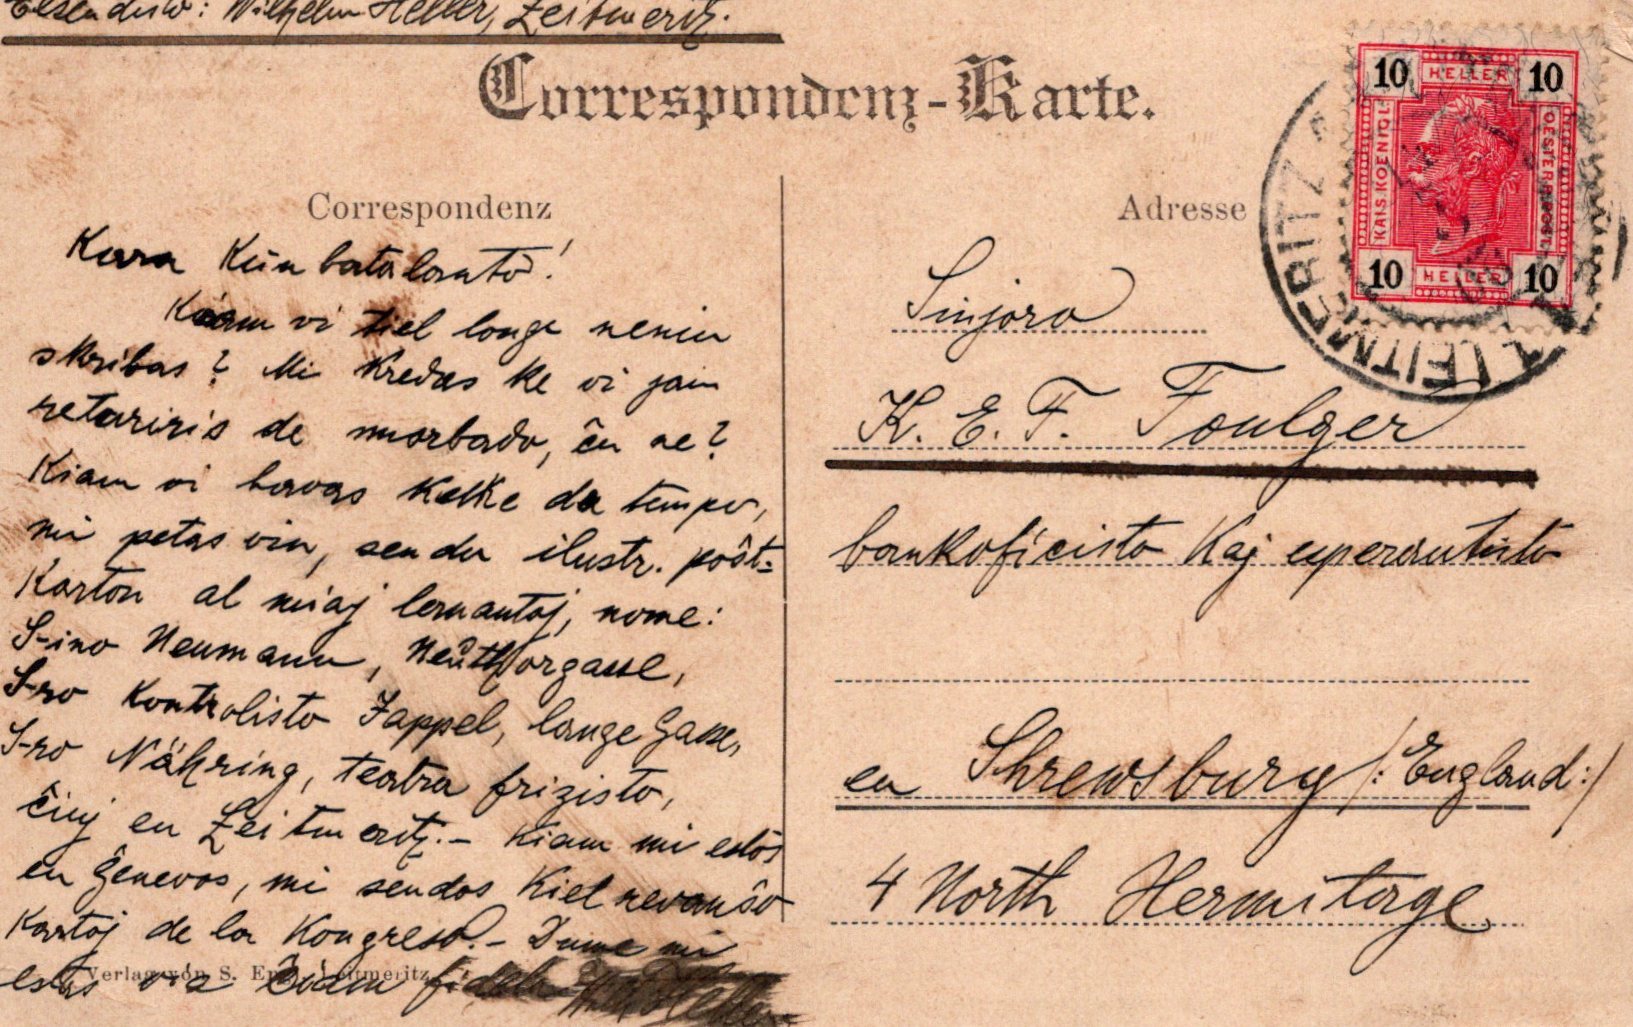 Elsendinto: Wilhelm Heller, Leitmeritz.
Correspondenz-Karte.
Correspondenz
Kara Kunbatalanto!
vi tiel longe nenion
skribas? Mi kredas ke vi jam
resaniris de morbado, ĉu ne?
Kiam vi havas kelke da tempo,
mi petas vin, sendu ilustr. poŝt-
karton al miaj lernantoj, nome:
S-ino Neumann, Neuthorgasse,
S-ro Kontrolisto Zappel, lange Gasse,
S-ro Nähring, teatra frizisto,
ĉiuj en Leitmeritz.- Kiam mi estos
en Ĝenevo, mi sendos kiel revanĉo
kartoj de la Kongreso.- Dume mi
estas via ĉiam fidela
Heller
Verlag von S. Leitmeritz
Adresse
Sinjoro
K. E. F. Foulger
bankoficisto kaj esperantisto
en Shrewsburg /:England:/
4 North Hermitage.
10 HELLER 10
KAIS. KOENIGL.
OESTERR. POST.
10 HELLER 10
LEITMERITZ